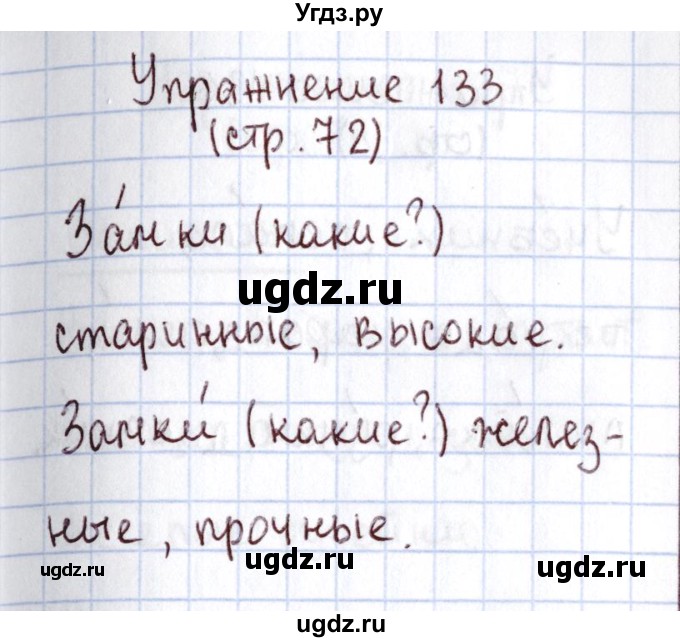 Угдз.ру
Упражнение 133
(стр. 72)
За́мки (какие?)
ugdz.ru
старинные, высокие.
Замки́ (какие?) желез-
ные, прочные.
ugdz.ru
ugdz.ru
ugdz.ru
ugdz.ru